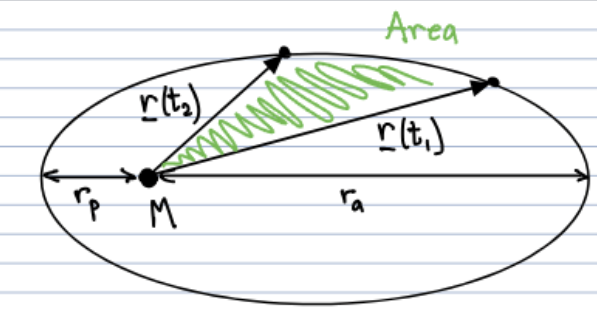 Area
r(t₂)
r(t₁)
r_p
M
r_a